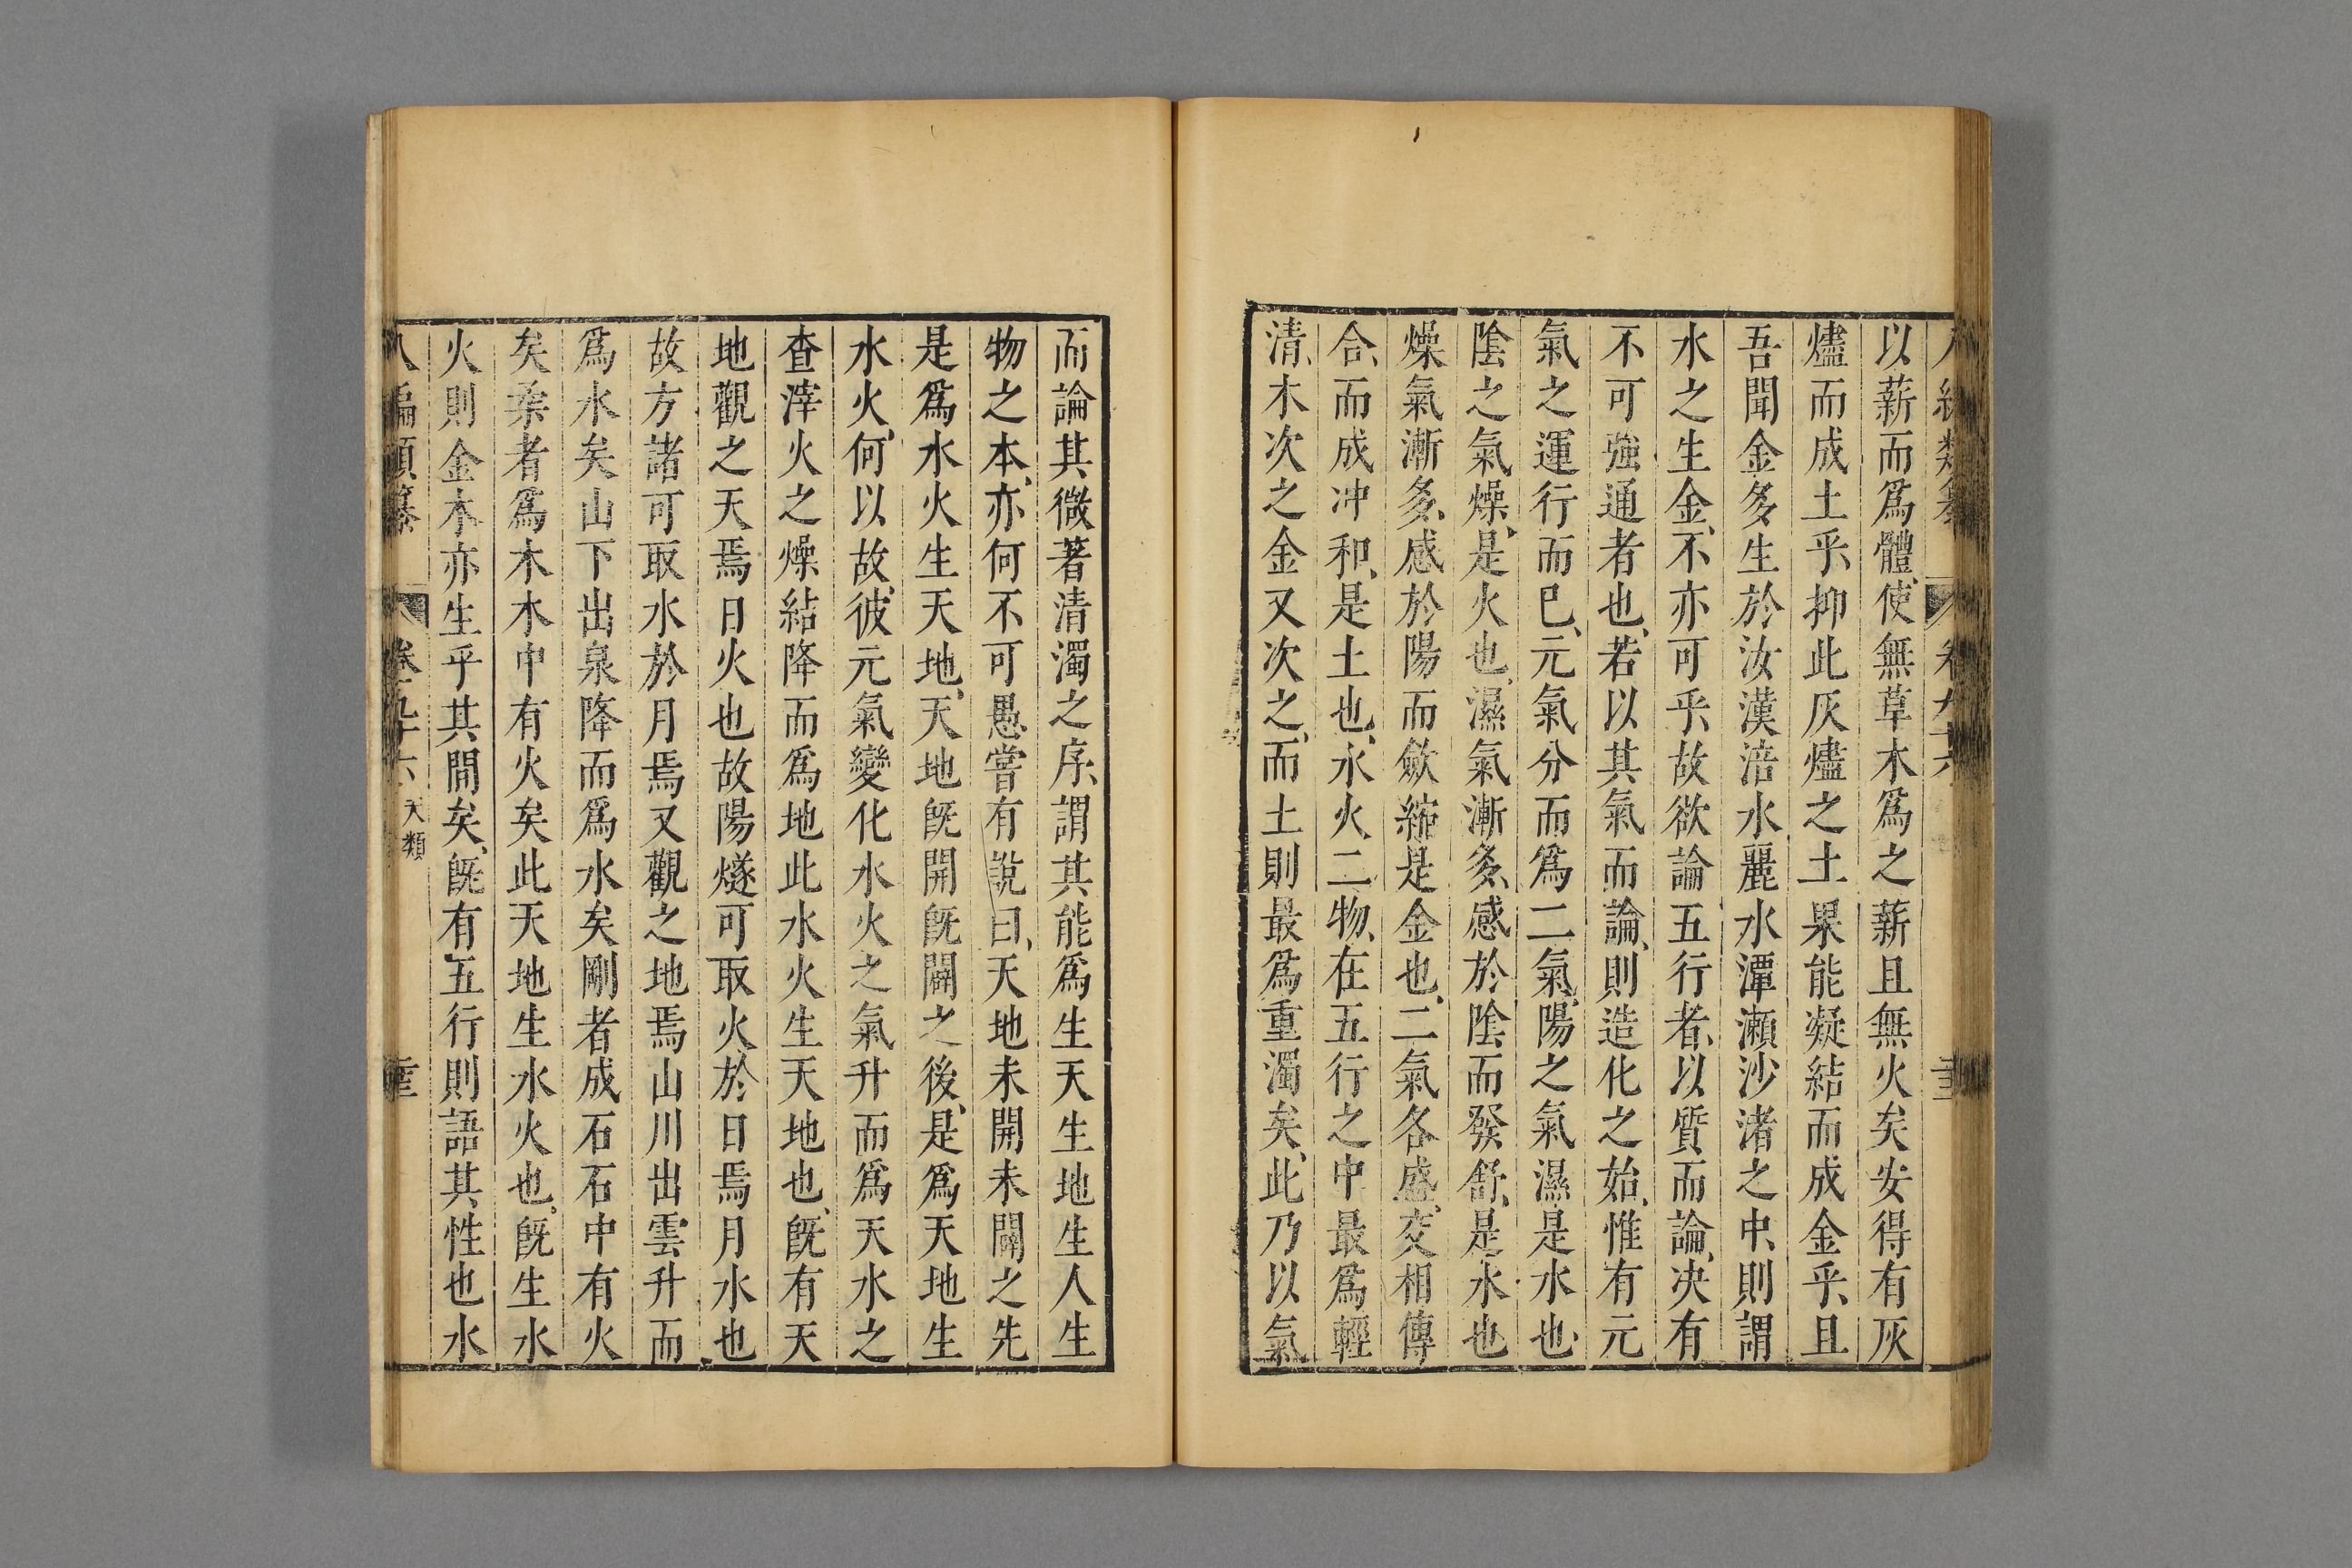 以薪而爲體、使無草木爲之薪且無火矣安得有灰
燼而成土乎、抑此灰燼之土果能凝結而成金乎、且
吾聞金多生於汝漢涪水麗水潭瀨沙渚之中、則謂
水之生金、不亦可乎、故欲論五行者、以質而論、决有
不可強通者也、若以其氣而論、則造化之始、惟有元
氣之運行而巳、元氣分而爲二氣、陽之氣濕是水也
陰之氣燥、是火也、濕氣漸多、感於陰而發舒、是水也
燥氣漸多、感於陽而歛縮是金也、二氣各盛、交相傳
合、而成冲和、是土也、水火二物、在五行之中最爲輕
清、木次之金又次之、而土則最爲重濁矣、此乃以氣
而論其微著清濁之序、謂其能爲生天生地生人生
物之本、亦何不可愚嘗有說曰、天地未開未闢之先
是爲水火生天地、天地旣開旣闢之後、是爲天地生
水火、何以故、彼元氣變化水火之氣升而爲天水之
查滓火之燥結降而爲地此水火生天地也、旣有天
地觀之天焉日火也故陽燧可取火於日焉月水也
故方諸可取水於月焉又觀之地焉山川出雲升而
爲水矣山下出泉降而爲水矣剛者成石石中有火
矣柔者爲木木中有火矣此天地生水火也、旣生水
火則金木亦生乎其間矣、旣有五行則語其性也水
八編類纂 卷之九十六 天類